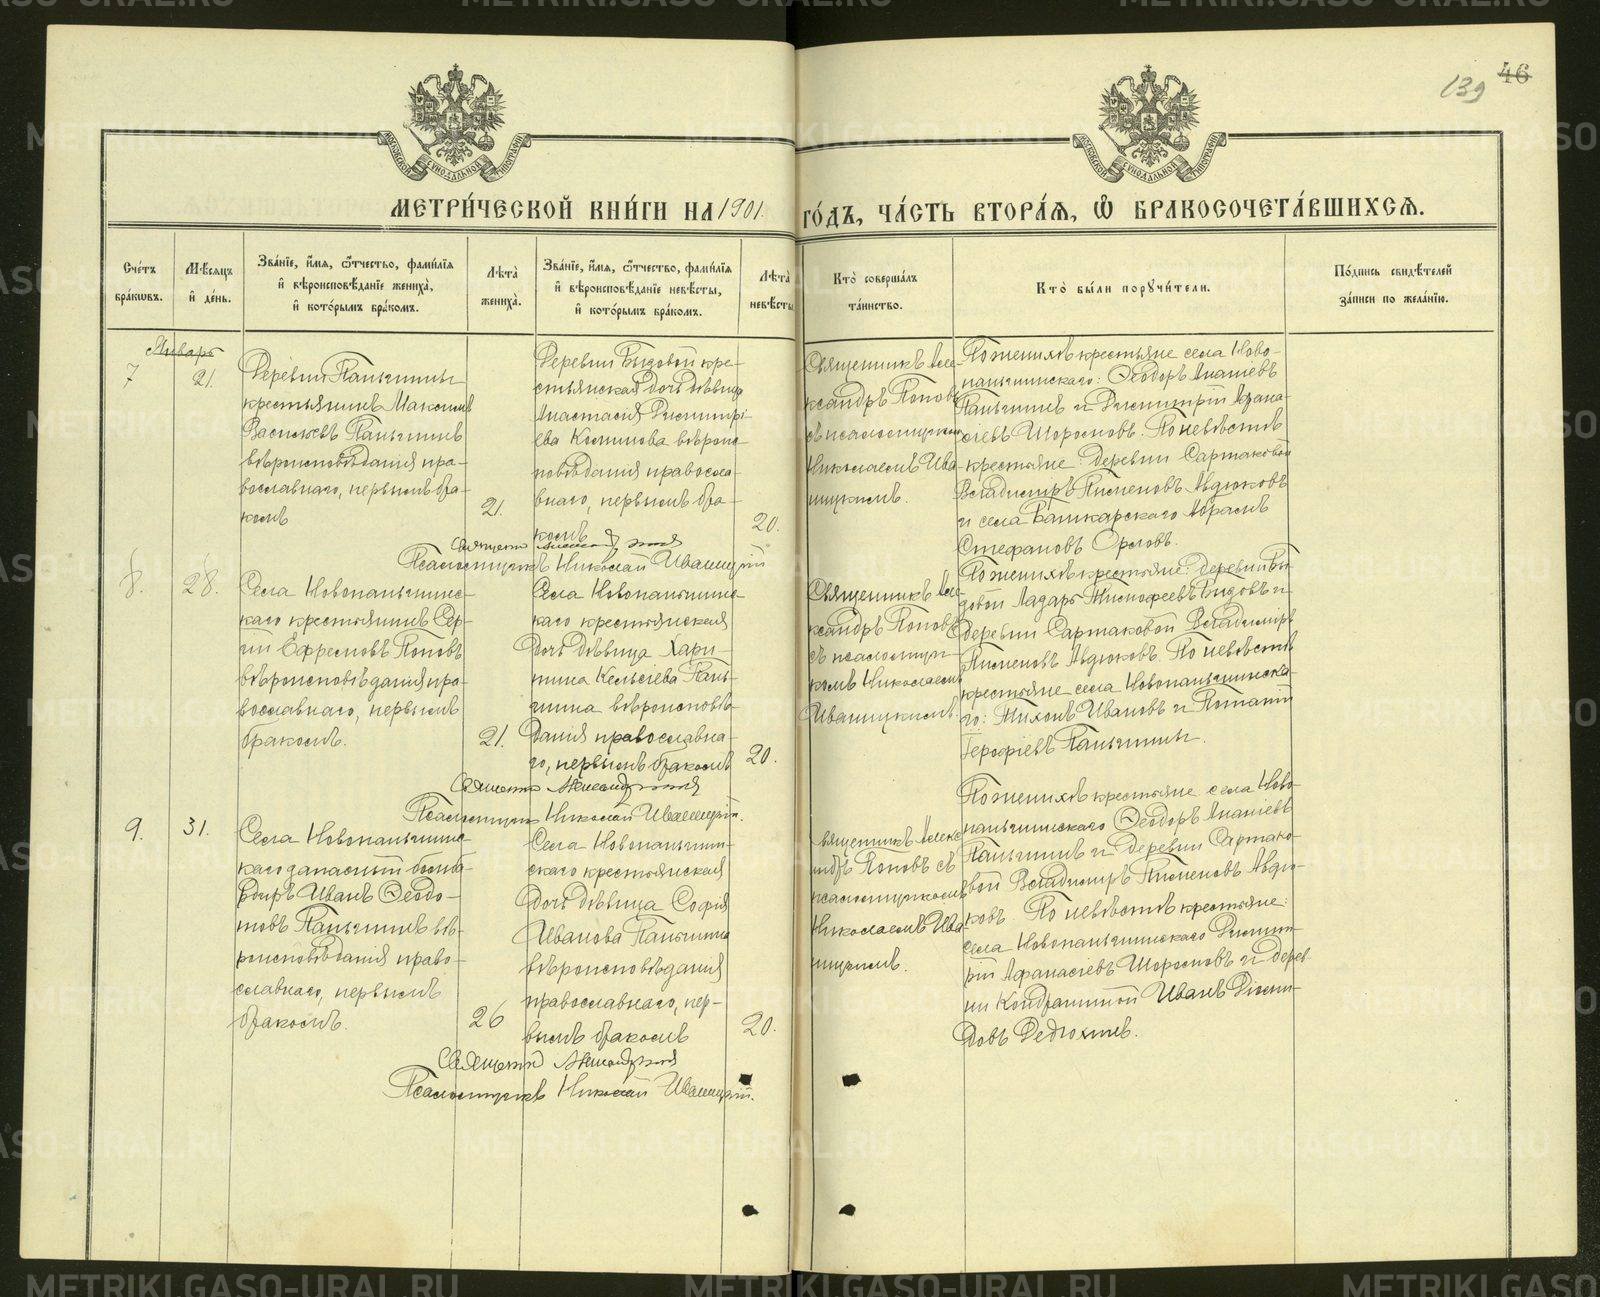 139 46
МОСКОВСКОЙ СѴНОДАЛЬНОЙ ТИПОГРАФІИ
МОСКОВСКОЙ СѴНОДАЛЬНОЙ ТИПОГРАФІИ
МЕТРИ́ЧЕСКОЙ КНИ́ГИ НА 1901 ГО́ДЪ, ЧА́СТЬ ВТОРА́Я, Ѡ҆ БРАКОСОЧЕТА́ВШИХСЯ.
Сче́тъ
бра́ковъ.
Мѣ́сяцъ
и҆ де́нь.
Зва́нїе, и҆́мя, ѻ҆́тчество, фами́лїя
и҆ вѣроисповѣ́данїе жениха̀,
и҆ кото́рымъ бра́комъ.
Лѣ́та
жениха̀.
Зва́нїе, и҆́мя, ѻ҆́тчество, фами́лїя
и҆ вѣроисповѣ́данїе невѣ́сты,
и҆ кото́рымъ бра́комъ.
Лѣ́та
невѣ́сты
Кто̀ соверша́лъ
та́инство.
Кто̀ бы́ли порꙋчи́тели.
По́дпись свидѣ́телей
за́писи по жела́нїю.
Январь
7
21.
Деревни Паньшины
крестьянинъ Максимъ
Васильевъ Паньшинъ
вѣроисповѣданія пра-
вославнаго, первымъ бра-
комъ
21.
Деревни Быдовой кре-
стьянская дочь дѣвица
Анастасія Димитрі-
ева Коминова вѣроис-
повѣданія правосла-
внаго, первымъ бра-
комъ
20.
Священникъ Але-
ксандръ Поповъ
съ псаломщикомъ
Николаемъ Ива-
ницкимъ.
По женихѣ крестьяне села Ново-
паньшинскаго: Ѳеодоръ Ананіевъ
Паньшинъ и Димитрій Афана-
сіевъ Шороховъ. По невѣстѣ
крестьяне: деревни Сартаковой
Владиміръ Пименовъ Авдюковъ
и села Башкарскаго Абрамъ
Стефановъ Орловъ.
Псаломщикъ Николай Иваницкій
8.
28.
Села Новопаньшинс-
каго крестьянинъ Сер-
гій Ефремовъ Поповъ
вѣроисповѣданія пра-
вославнаго, первымъ
бракомъ.
21.
Села Новопаньшинс-
каго крестьянская
дочь дѣвица Хари-
тина Кельсіева Пань-
шина вѣроисповѣ-
данія православна-
го, первымъ бракомъ
20.
Священникъ Але-
ксандръ Поповъ
съ псаломщи-
комъ Николаемъ
Иваницкимъ.
По женихѣ крестьяне: деревни Бы-
довой Лазарь Тимофеевъ Быдовъ и
деревни Сартаковой Владиміръ
Пименовъ Авдюковъ. По невѣстѣ
крестьяне села Новопаньшинска-
го: Тихонъ Ивановъ и Потапій
Герофіевъ Паньшины.
Священникъ Александръ Поповъ
Псаломщикъ Николай Иваницкій.
9.
31.
Села Новопаньшинс-
каго запасный бомба-
рдиръ Иванъ Ѳеодо-
товъ Паньшинъ вѣ-
роисповѣданія право-
славнаго, первымъ
бракомъ.
26
Села Новопаньшин-
скаго крестьянская
дочь дѣвица Софія
Иванова Паньшина
вѣроисповѣданія
православнаго, пер-
вымъ бракомъ
20.
Священникъ Алекс-
андръ Поповъ съ
псаломщикомъ
Николаемъ Ива-
ницкимъ.
По женихѣ крестьяне села Ново-
паньшинскаго Ѳеодоръ Ананіевъ
Паньшинъ и деревни Сартако-
вой Владиміръ Пименовъ Авдю-
ковъ. По невѣстѣ крестьяне:
села Новопаньшинскаго Димит-
рій Афанасіевъ Шороховъ и дерев-
ни Кондрашиной Иванъ Діоми-
довъ Дедюхинъ.
Священникъ Александръ Поповъ
Псаломщикъ Николай Иваницкій.